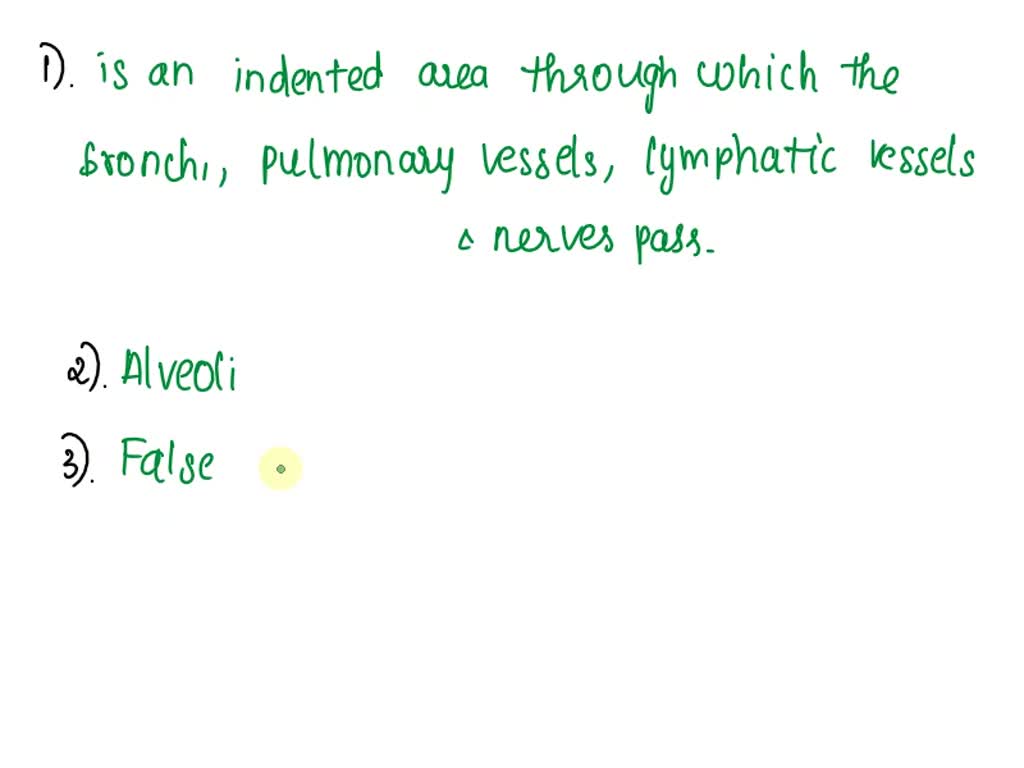 1). is an indented area through which the
bronchi, pulmonary vessels, lymphatic vessels
& nerves pass.
2). Alveoli
3). False